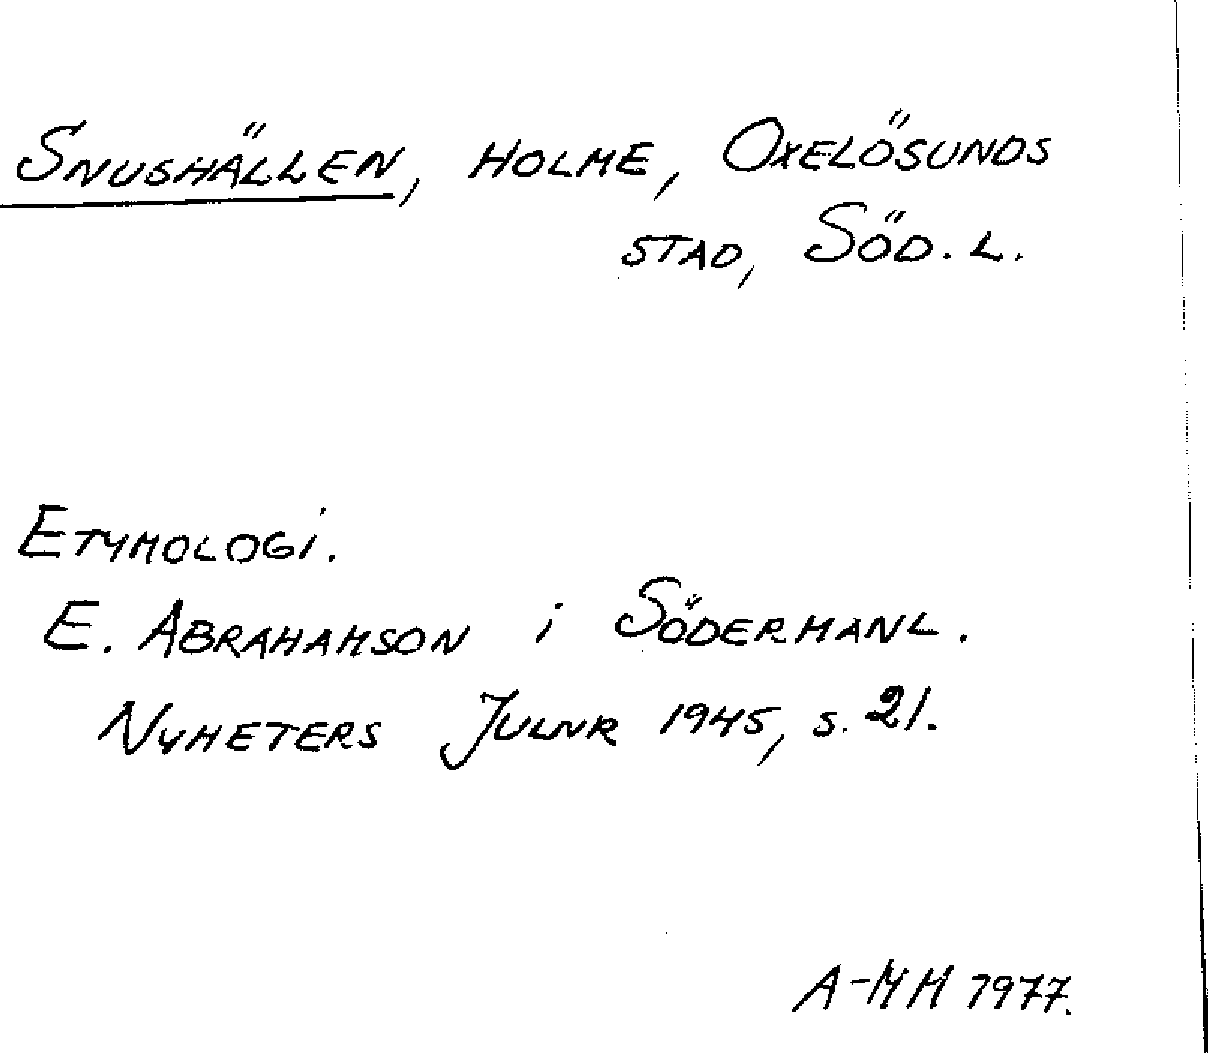 Snushällen, holme, Oxelösunds
stad, Söd. L.
Etymologi.
E. Abrahamson i Södermanl.
Nyheters Julnr 1945, s. 21.
A-MH 1977.